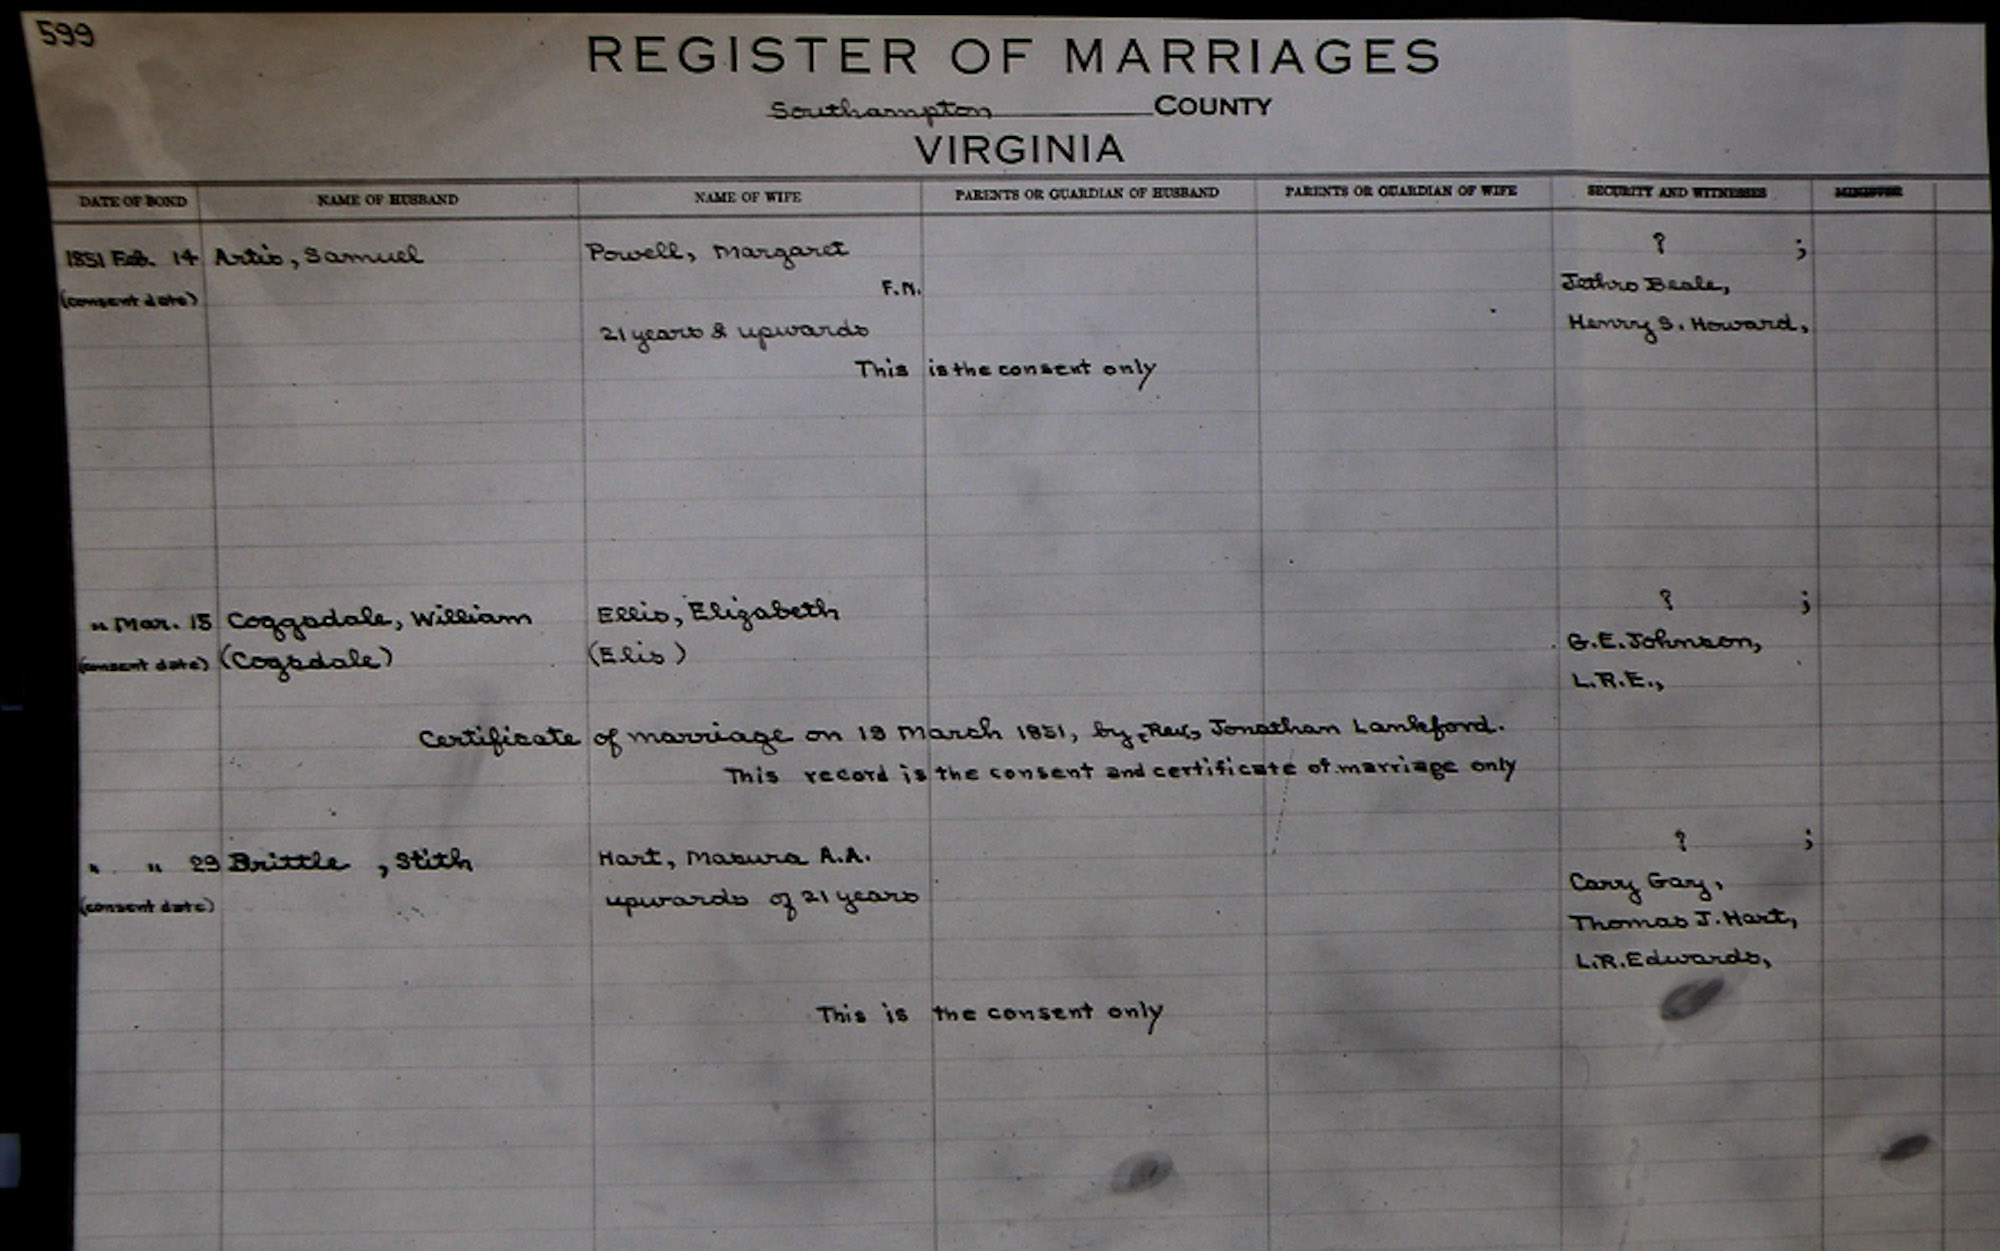 599
REGISTER OF MARRIAGES
Southampton COUNTY
VIRGINIA
DATE OF BOND NAME OF HUSBAND NAME OF WIFE PARENTS OR GUARDIAN OF HUSBAND PARENTS OR GUARDIAN OF WIFE SECURITY AND WITNESSES MINISTER
1851 Feb. 14 Artis, Samuel Powell, Margaret ? ;
(consent date) F.N. Jethro Beale,
21 years & upwards Henry S. Howard,
This is the consent only
" Mar. 15 Coggsdale, William Ellis, Elizabeth ? ;
(consent date) (Cogsdale) (Elis) G.E. Johnson,
L.R.E.,
Certificate of marriage on 19 March 1851, by, Rev., Jonathan Lankford.
This record is the consent and certificate of marriage only
" " 29 Brittle , Stith Hart, Masura A.A. ? ;
(consent date) upwards of 21 years Cary Gay,
Thomas J. Hart,
L.R. Edwards,
This is the consent only